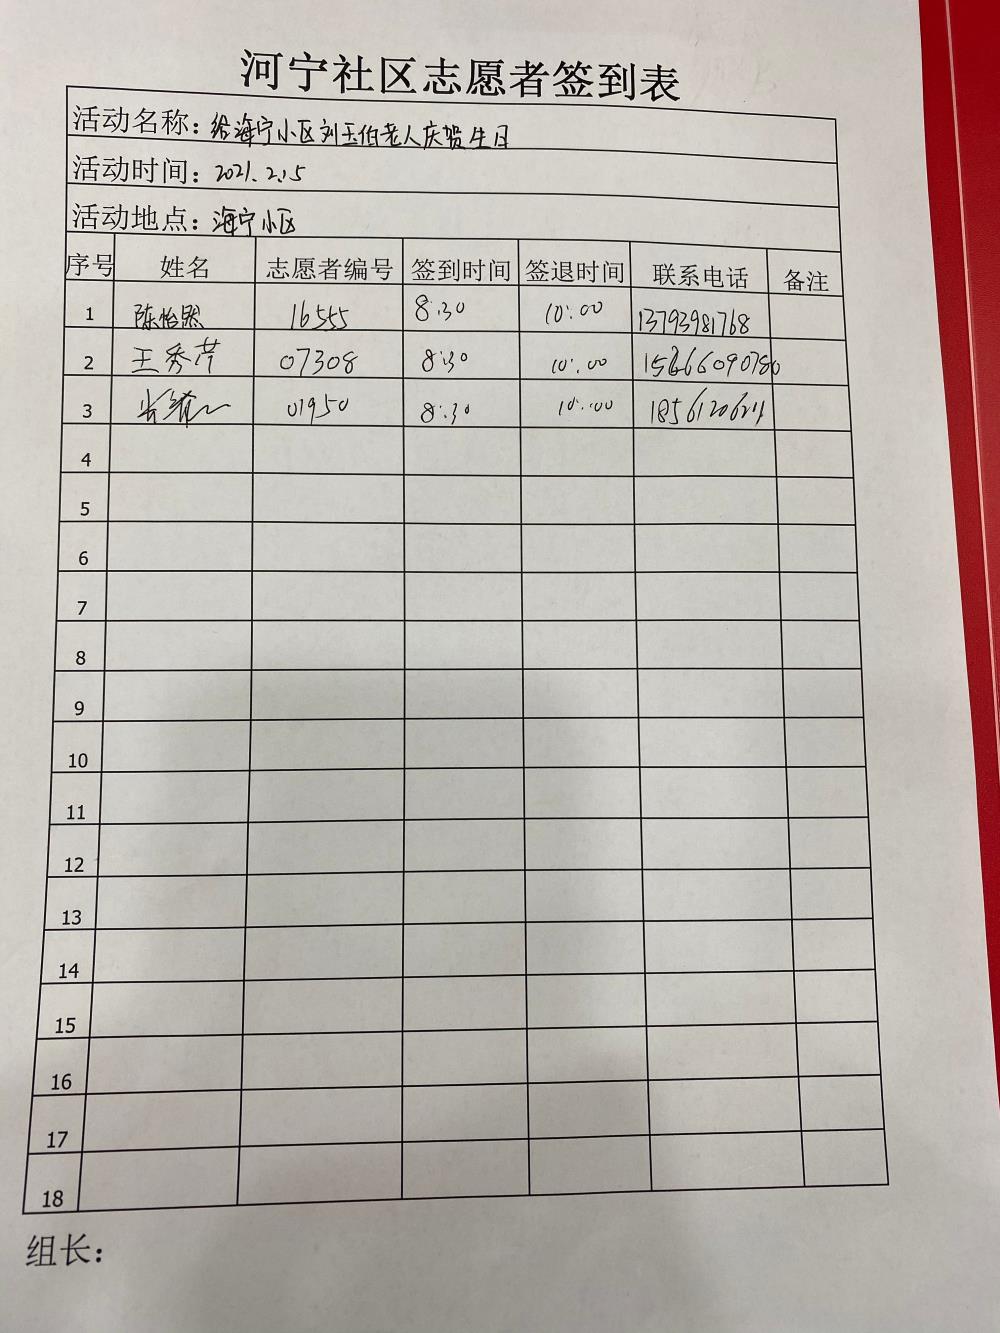 河宁社区志愿者签到表
活动名称：给海宁小区刘玉伯老人庆贺生日
活动时间：2021.2.15
活动地点：海宁小区
序号 姓名 志愿者编号 签到时间 签退时间 联系电话 备注
1 陈怡熙 16555 8:30 10:00 13793981768
2 王秀芹 07308 8:30 10:00 15666090780
3 01950 8:30 10:00
4
5
6
7
8
9
10
11
12
13
14
15
16
17
18
组长：